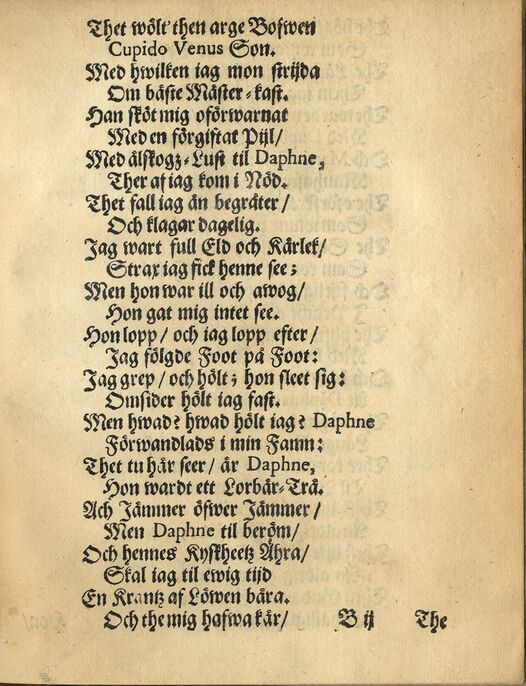 Thet wölt then arge Bofwen
Cupido Venus Son.
Med hwilken iag mon strijda
Om bäste Mäster-kast.
Han sköt mig oförwarnat
Med en förgiftat Pijl/
Med älskogz-Lust til Daphne,
Ther af iag kom i Nöd.
Thet fall iag än begråter/
Och klagar dagelig.
Jag wart full Eld och Kärlek/
Strax iag fick henne see;
Men hon war ill och awog/
Hon gat mig intet see.
Hon lopp/ och iag lopp efter/
Jag fölgde Foot på Foot:
Jag grep/ och hölt; hon sleet sig:
Omsider hölt iag fast.
Men hwad? hwad hölt iag? Daphne
Förwandlads i min Famn:
Thet tu här seer/ är Daphne,
Hon wardt ett Lorbär-Trä.
Ach Jämmer öfwer Jämmer/
Men Daphne til beröm/
Och hennes Kyskheetz Ähra/
Skal iag til ewig tijd
En Krantz af Löwen bära.
Och the mig hafwa kär/ B ij The